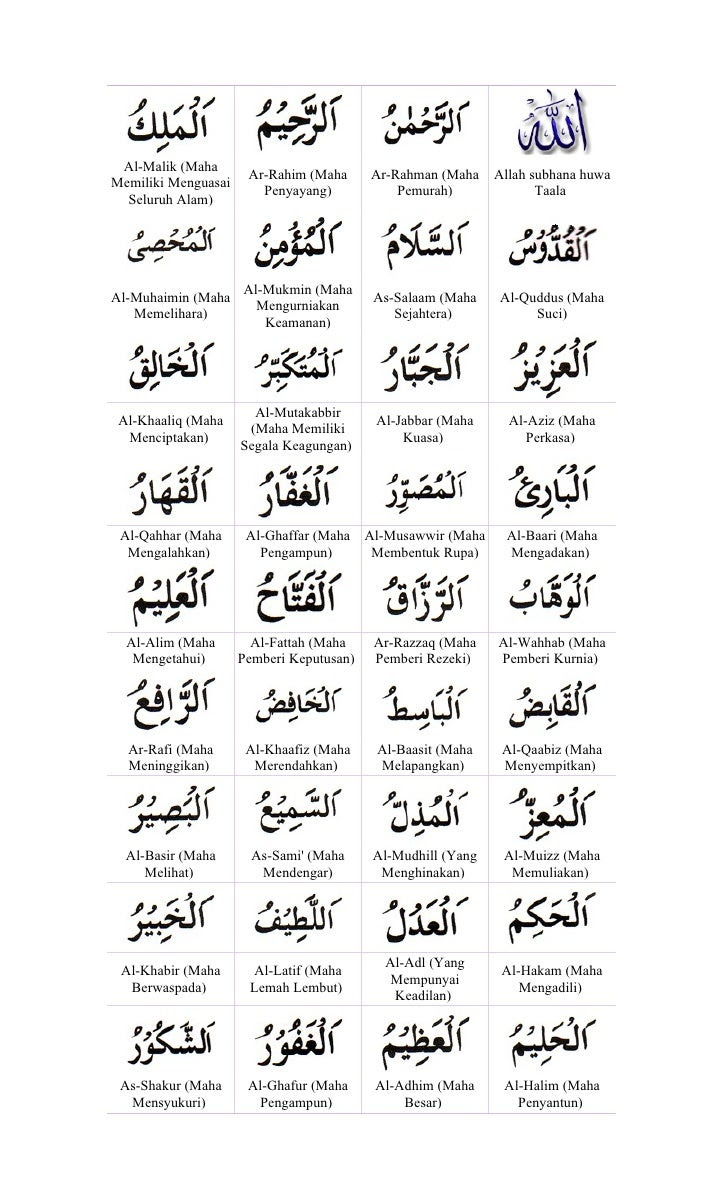 اَللّٰهُ
Allah subhana huwa
Taala
اَلرَّحْمٰنُ
Ar-Rahman (Maha
Pemurah)
اَلرَّحِيْمُ
Ar-Rahim (Maha
Penyayang)
اَلْمَلِكُ
Al-Malik (Maha
Memiliki Menguasai
Seluruh Alam)
اَلْقُدُّوْسُ
Al-Quddus (Maha
Suci)
اَلسَّلَامُ
As-Salaam (Maha
Sejahtera)
اَلْمُؤْمِنُ
Al-Mukmin (Maha
Mengurniakan
Keamanan)
اَلْمُحْصِىُ
Al-Muhaimin (Maha
Memelihara)
اَلْعَزِيْزُ
Al-Aziz (Maha
Perkasa)
اَلْجَبَّارُ
Al-Jabbar (Maha
Kuasa)
اَلْمُتَكَبِّرُ
Al-Mutakabbir
(Maha Memiliki
Segala Keagungan)
اَلْخَالِقُ
Al-Khaaliq (Maha
Menciptakan)
اَلْبَارِئُ
Al-Baari (Maha
Mengadakan)
اَلْمُصَوِّرُ
Al-Musawwir (Maha
Membentuk Rupa)
اَلْغَفَّارُ
Al-Ghaffar (Maha
Pengampun)
اَلْقَهَارُ
Al-Qahhar (Maha
Mengalahkan)
اَلْوَهَّابُ
Al-Wahhab (Maha
Pemberi Kurnia)
اَلرَّزَّاقُ
Ar-Razzaq (Maha
Pemberi Rezeki)
اَلْفَتَّاحُ
Al-Fattah (Maha
Pemberi Keputusan)
اَلْعَلِيْمُ
Al-Alim (Maha
Mengetahui)
اَلْقَابِضُ
Al-Qaabiz (Maha
Menyempitkan)
اَلْبَاسِطُ
Al-Baasit (Maha
Melapangkan)
اَلْخَافِضُ
Al-Khaafiz (Maha
Merendahkan)
اَلرَّافِعُ
Ar-Rafi (Maha
Meninggikan)
اَلْمُعِزُّ
Al-Muizz (Maha
Memuliakan)
اَلْمُذِلُّ
Al-Mudhill (Yang
Menghinakan)
اَلسَّمِيْعُ
As-Sami' (Maha
Mendengar)
اَلْبَصِيْرُ
Al-Basir (Maha
Melihat)
اَلْحَكَمُ
Al-Hakam (Maha
Mengadili)
اَلْعَدْلُ
Al-Adl (Yang
Mempunyai
Keadilan)
اَللَّطِيْفُ
Al-Latif (Maha
Lemah Lembut)
اَلْخَبِيْرُ
Al-Khabir (Maha
Berwaspada)
اَلْحَلِيْمُ
Al-Halim (Maha
Penyantun)
اَلْعَظِيْمُ
Al-Adhim (Maha
Besar)
اَلْغَفُوْرُ
Al-Ghafur (Maha
Pengampun)
اَلشَّكُوْرُ
As-Shakur (Maha
Mensyukuri)